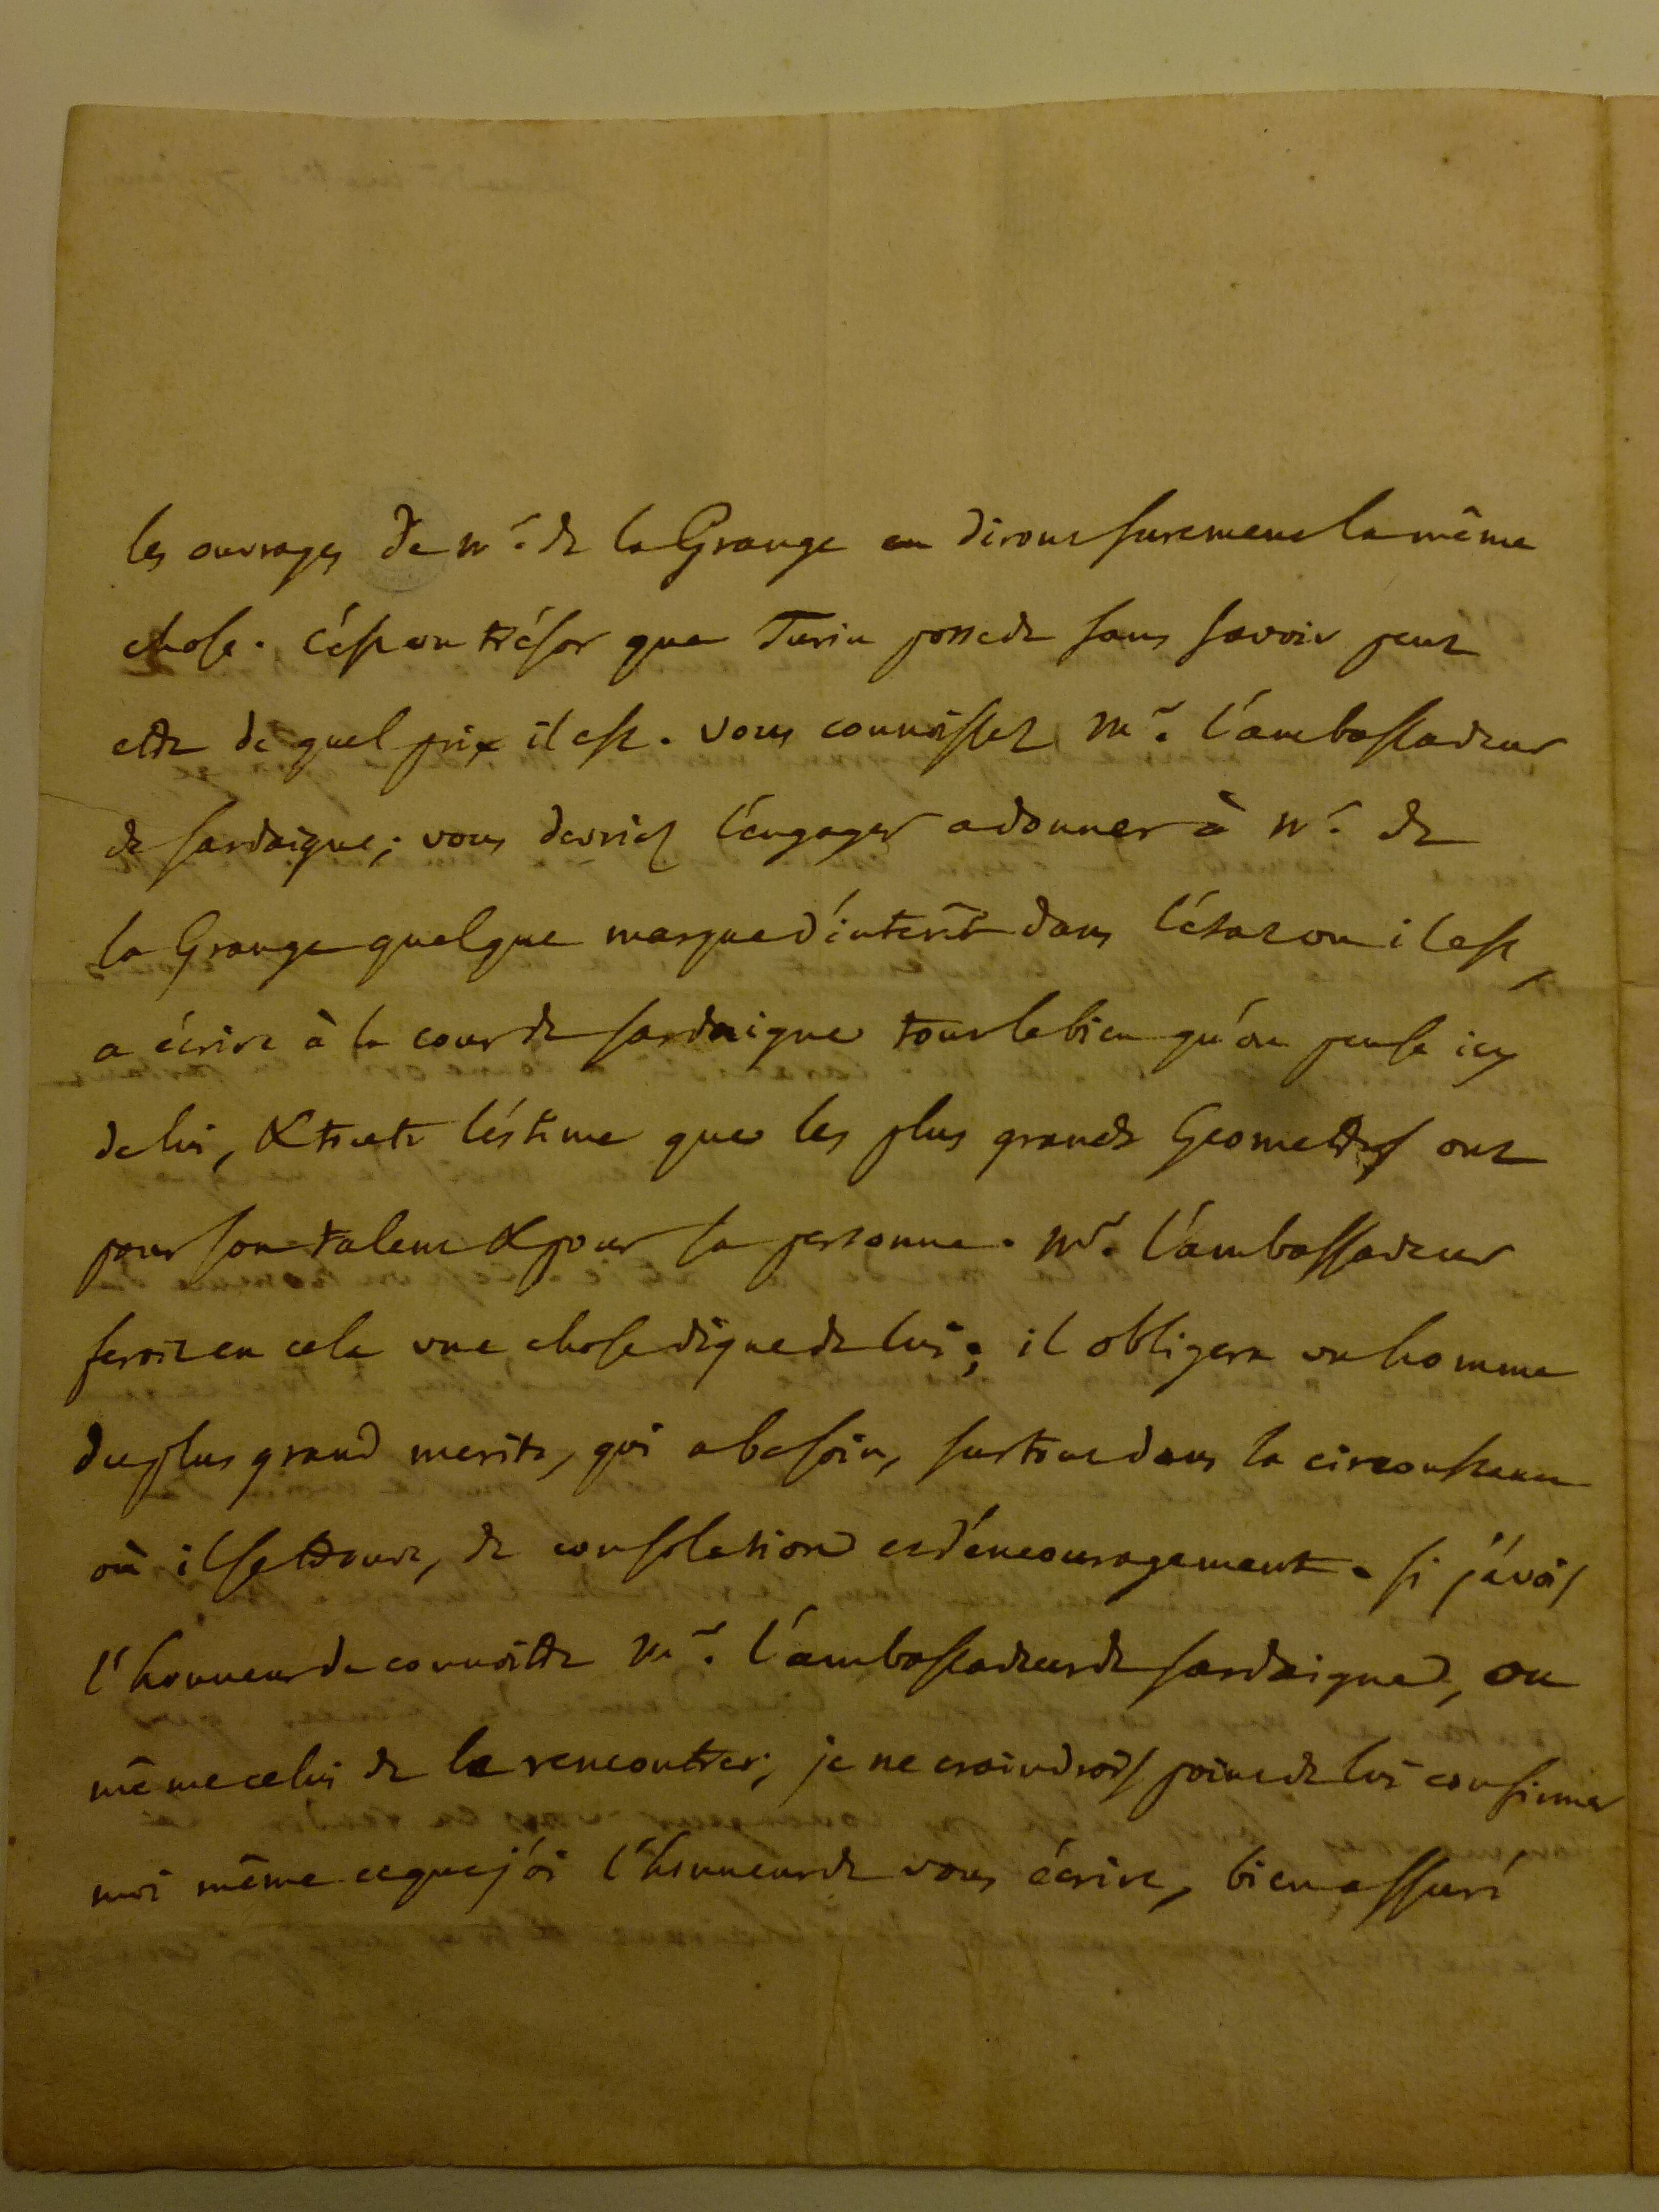 les ouvrages de Mr. de la Grange en diront surement la même
chose. C'est un trésor que Turin possede sans savoir peut
etre de quel prix il est. vous connoissez Mr. l'ambassadeur
de Sardaigne; vous devriez l'engager a donner à Mr. de
la Grange quelque marque d'interêt dans l'état ou il est,
a écrire à la cour de Sardaigne tout le bien qu'on pense icy
de lui, & toute l'estime que les plus grands Geometres ont
pour son talent & pour sa personne. Mr. l'ambassadeur
feroit en cela une chose digne de lui; il obligera un homme
du plus grand merite, qui a besoin, surtout dans la circonstance
où il se trouve, de consolation et d'encouragement. si j'avois
l'honneur de connoître Mr. l'ambassadeur de Sardaigne, ou
même celui de le rencontrer, je ne craindrois point de lui confirmer
moi même ce que j'ai l'honneur de vous écrire, bien assuré